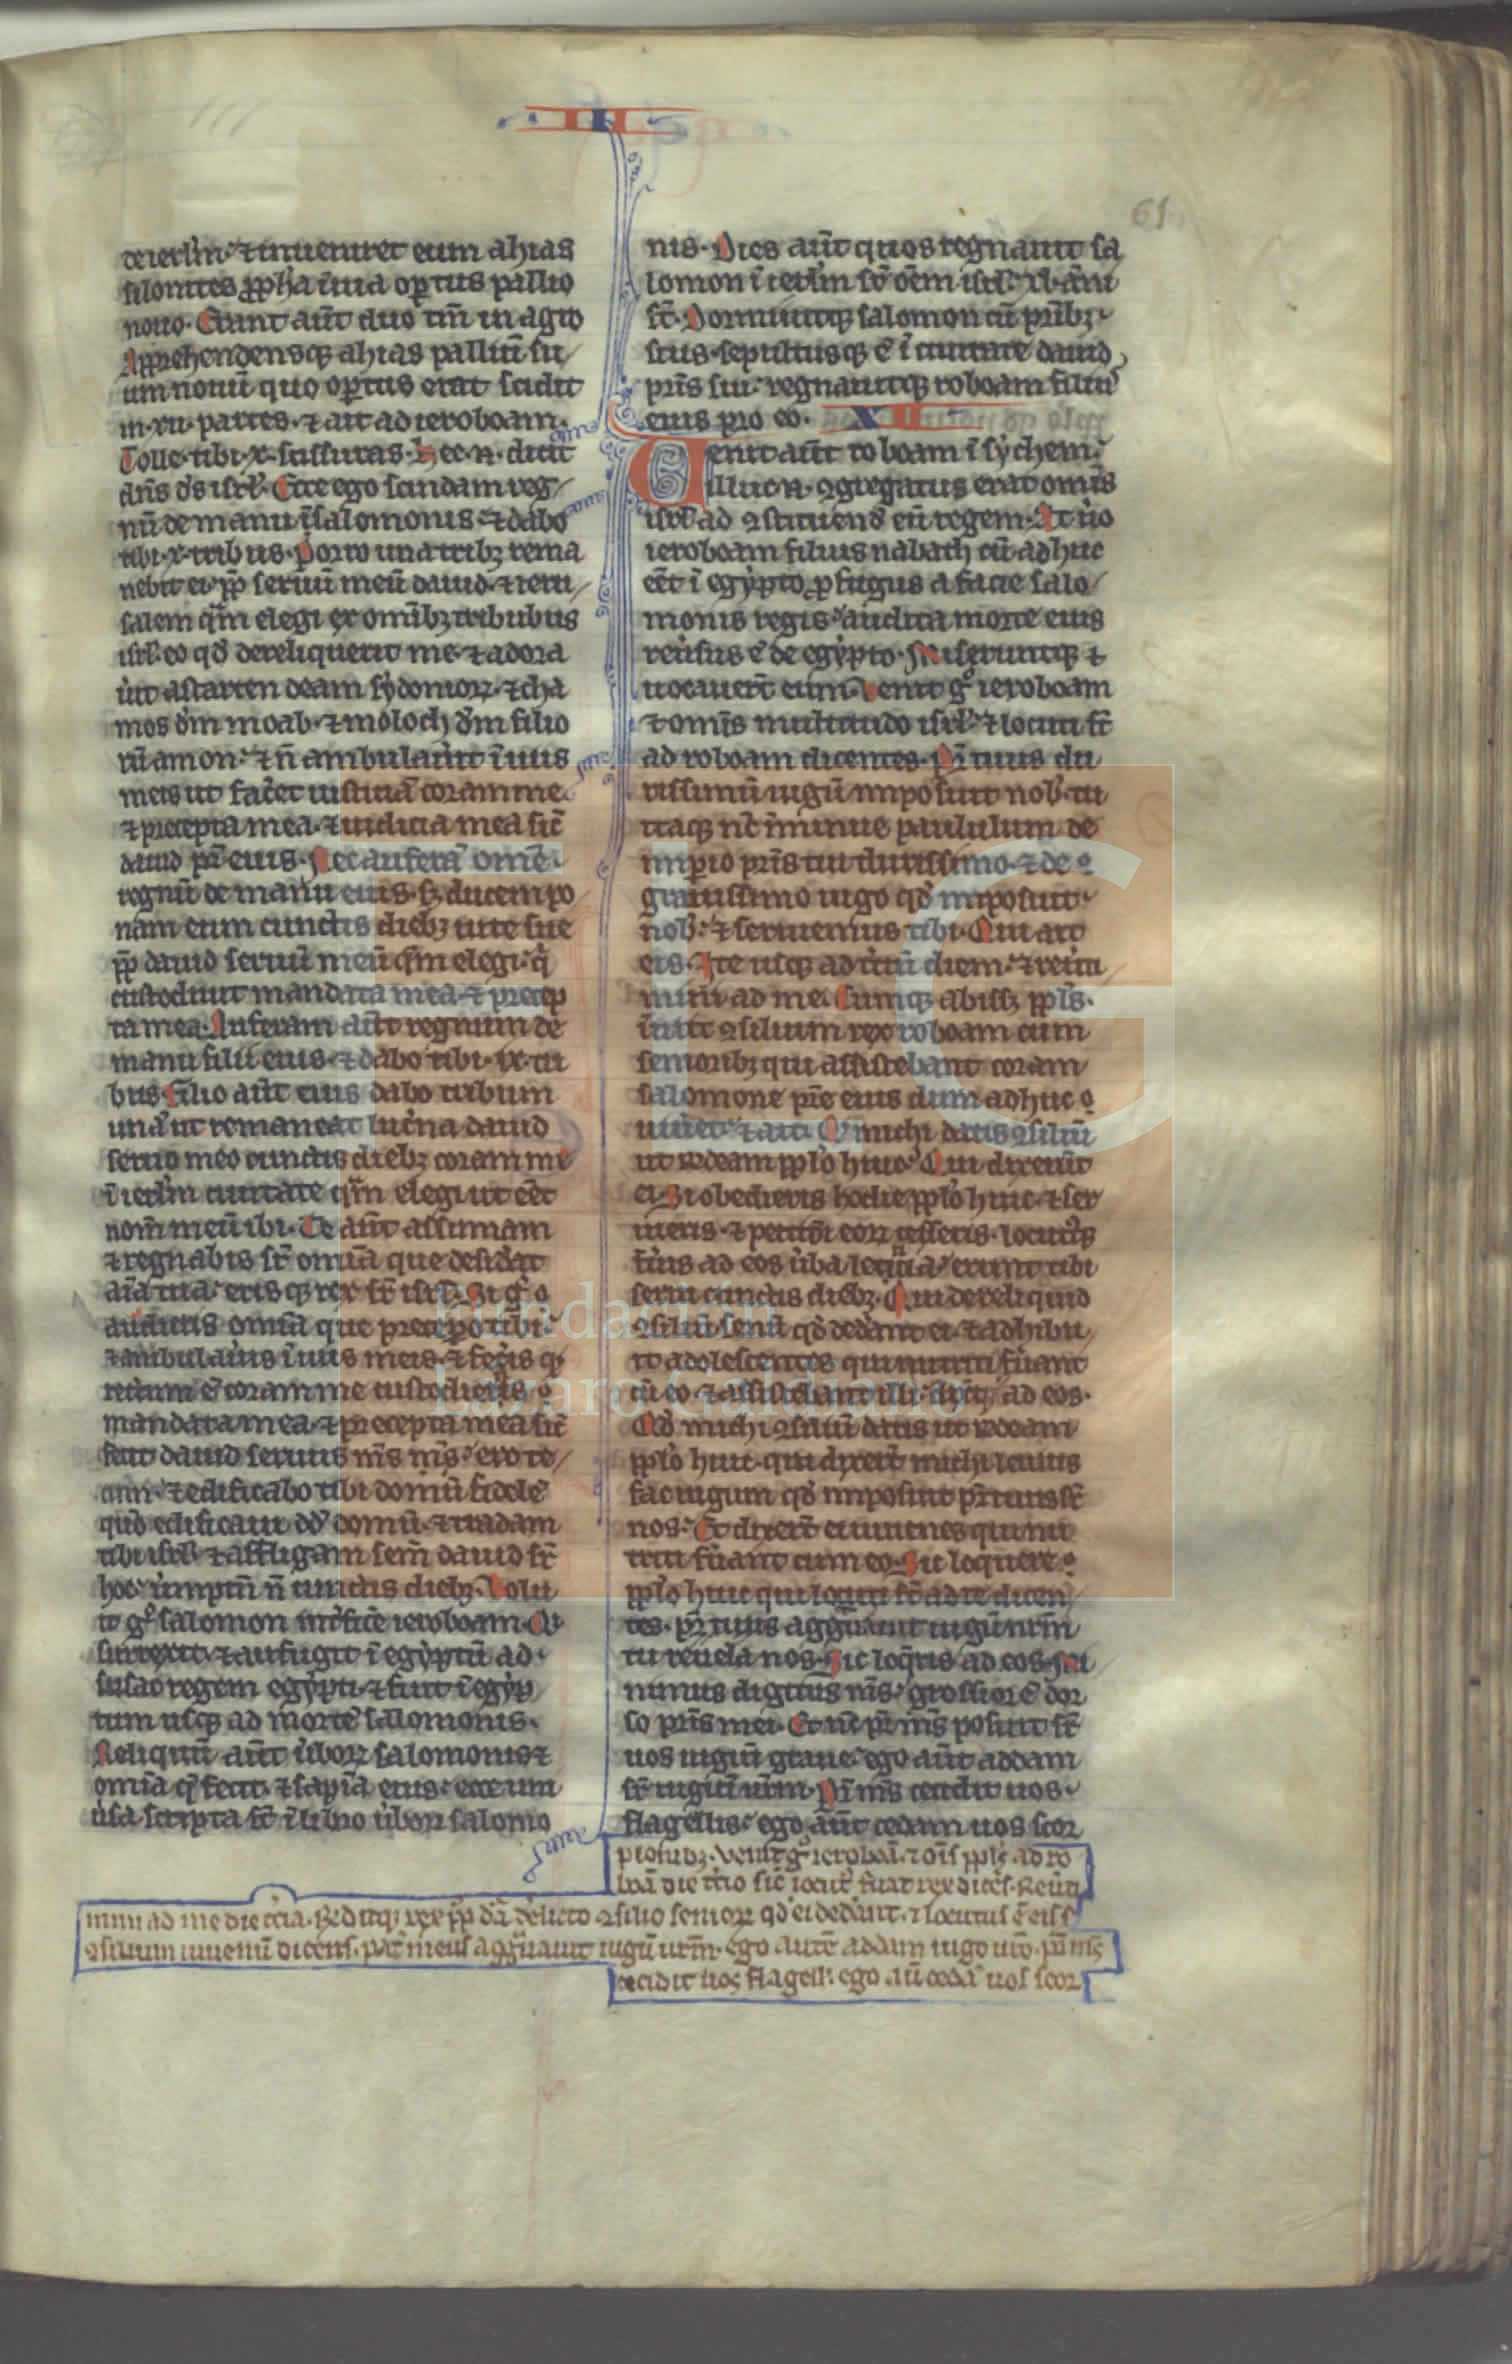 III
61
de ierl̄m. ⁊ inueniret eum ahias
silonites ꝓph̄a ī uia oꝑtus pallio
nouo. Erant aūt duo tm̄ in agro
Apprehendensqꝫ ahias palliū su
um nouū quo oꝑtus erat scidit
in .xii. partes. ⁊ ait ad ieroboam.
Tolle tibi .x. scissuras. Hec .n. dicit
dn̄s ds̄ isrl̄. Ecce ego scindam reg
nū de manu salomonis. ⁊ dabo
tibi .x. tribus. Porro una tribꝫ rema
nebit ei ꝓp̄ seruū meū dauid. ⁊ ieru
salem qm̄ elegi ex omībꝫ tribubus
isrl̄. eo qd̄ dereliquerit me. ⁊ adora
ūit astarten deam sydonioꝝ. ⁊ cha
mos dm̄ moab. ⁊ moloch dm̄ filio
rū amon. ⁊ n̄ ambulaūit ī uiis
meis ut fac̄et iusticiā coram me.
⁊ precepta mea. ⁊ iudicia mea sic̄
dauid pr̄ eius. Nec auferā omē
regnū de manu eius. sꝫ ducem po
nam eum cunctis diebꝫ uite sue
ꝓp̄ dauid seruū meū qm̄ elegi. q̄
custodiuit mandata mea. ⁊ precep
ta mea. Auferam aūt regnum de
manu filii eius. ⁊ dabo tibi .ix. tri
bus. Filio aūt eius dabo tribum
unā ut remaneat luc̄na dauid
seruo meo cunctis diebꝫ coram me
ī ierl̄m ciuitate qm̄ elegi ut eēt
nom̄ meū ibi. Te aūt assumam
⁊ regnabis sr̄ omīa que desid̄at
aīa tua. erisqꝫ rex sr̄ isrl̄. Si gͦ
audieris omīa que precepero tibi.
⁊ ambulaūis ī uiis meis. ⁊ fec̄is qͩ
rectum ē coram me custodiens
mandata mea. ⁊ precepta mea sic̄
fecit dauid seruus ms̄. ero te
cum. ⁊ edificabo tibi domū fidelē
quō edificaui dd̄ domū. ⁊ tradam
tibi isrl̄. ⁊ affligam sem̄ dauid sr̄
hoc. ūmptn̄ n̄ cunctis diebꝫ. Uolu
it gͦ salomon int̄fic̄e ieroboam. Qi
surrexit. ⁊ aufugit ī egyptū ad
susac regem egypti. ⁊ fuit ī egyp
tum usqꝫ ad mortē salomonis.
Reliquū aūt ūboꝝ salomonis ⁊
omīa q̄ fecit. ⁊ sapīa eius. ecce uni
ūsa scripta st̄ ī libro ūboꝝ salomo
nis. Dies aūt quos regnauit sa
lomon ī ierl̄m sr̄ oēm isrl̄. xl. āni
st̄. Dormiuitqꝫ salomon cū pr̄ibꝫ
suis. sepultusqꝫ ē ī ciuitate dauid
pr̄is sui. regnauitqꝫ roboam filius
eius pro eo. XII
Uenit aūt roboam ī sychem.
illuc .n. ꝯgregatus erat omīs
isrl̄ ad ꝯstituend̄ eū regem. At ūo
ieroboam filius nabath cū adhuc
eēt ī egypto ꝓfugus a facie salo
monis regis. audita morte eius
reūsus ē de egypto. Miseruntqꝫ ⁊
uocauer̄t eum. Uenit gͦ ieroboam
⁊ omīs multitudo isrl̄. ⁊ locuti st̄
ad roboam dicentes. Pr̄ tuus du
rissimū iugū imposuit nob̄. tu
itaqꝫ nc̄ iminue paululum de
imꝑio pr̄is tui durissimo. ⁊ de
grauissimo iugo qd̄ imposuit
nob̄. ⁊ seruiemus tibi. Qui ait
eis. Ite usqꝫ ad t̄ciū diem. ⁊ reūti
mini ad me. Cumqꝫ abissꝫ ppl̄s.
iniit ꝯsilium rex roboam cum
senioribꝫ qui assistebant coram
salomone pr̄e eius dum adhuc
uiūet. ⁊ ait. Qd̄ michi datis ꝯsiliū
ut reddeam ppl̄o huic. Qui dixer̄ūt
ei. Si obedieris hodie ppl̄o huic. ⁊ ser
uieris. ⁊ peticōi eoꝝ cesseris. locutusqꝫ
fūis ad eos ūba lenia. erunt tibi
serui cunctis diebꝫ. Qui dereliquid
ꝯsiliū senū qd̄ ded̄ant ei. ⁊ adhibu
it adolescentes qui nutriti fūant
cū eo. ⁊ assistebant illi. dixitqꝫ ad eos.
Qd̄ michi ꝯsiliū datis ut reddeam
ppl̄o huic. qui dixer̄t michi leuius
fac iugum qd̄ imposuit pr̄ tuus sr̄
nos. Et dixer̄t ei iuuenes qui nu
triti fūant cum eo. Sic loquere
ppl̄o huic qui locuti st̄ ad te dicen
tes. pr̄ tuus aggūauit iugū nr̄m
tu releua nos. Sic loq̄ris ad eos. Mi
nimus digitus ms̄. grossior ē dor
so pr̄is mei. Et nc̄ pr̄ ms̄ posuit sr̄
uos iugum graue. ego aūt addam
sr̄ iugum ur̄m. Pr̄ ms̄ cecidit uos
flagellis. ego aūt cedam uos scor
piōibꝫ. Venit gͦ ieroboā. ⁊ oīs ppl̄s ad ro
boā die t̄cio sic̄ locut̄ fūat rex dicēs. Reūti
mini ad me die t̄cia. Rn̄ditqꝫ rex ppl̄o dā derelicto ꝯsilio senioꝝ qd̄ ei ded̄ant. ⁊ locutus ē eis s̄
ꝯsilium iuuenū dicens. pat̄ meus aggūauit iugū ur̄m. ego autē addam iugo ur̄o. pr̄ ms̄
cecidit uos flagell̄. ego aū cedā uos scor
Fundación
Lázaro Galdiano